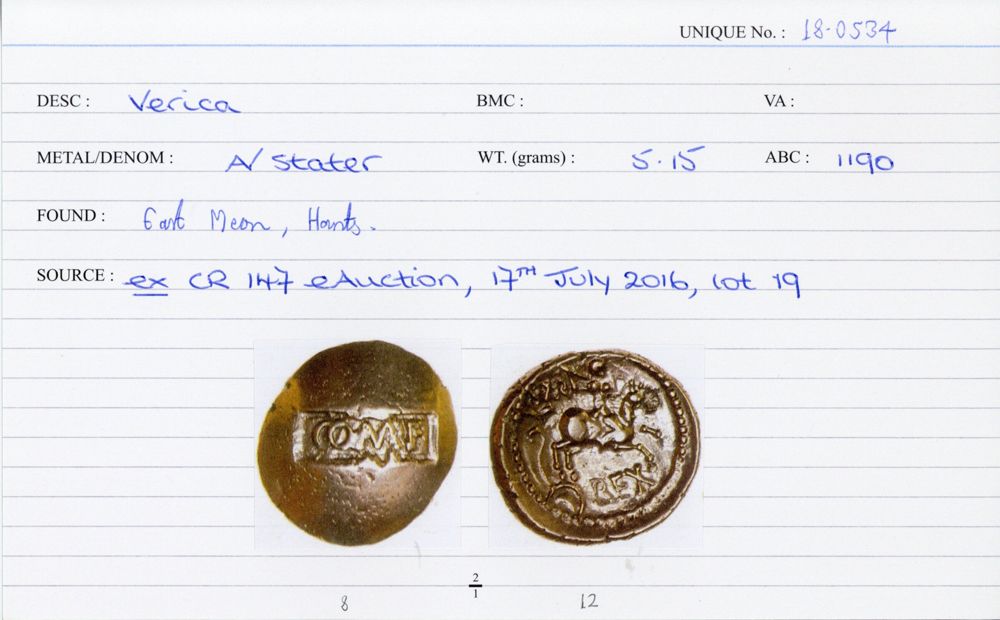 UNIQUE No. : 18-0534
DESC : Verica BMC : VA :
METAL/DENOM : A/ Stater WT. (grams) : 5.15 ABC : 1190
FOUND : East Meon, Hants.
SOURCE : ex CR 147 eAuction, 17TH July 2016, lot 19
COM·F
REX
2
1
8 12